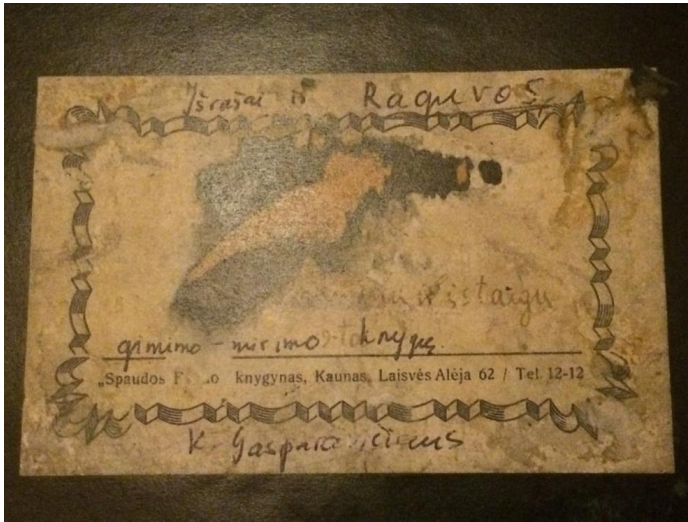 Išrašai iš Raguvos
ir įstaigų
gimimo - mirimo knygų.
„Spaudos F o knygynas, Kaunas, Laisvės Alėja 62 / Tel. 12-12
K. Gasparavičiaus